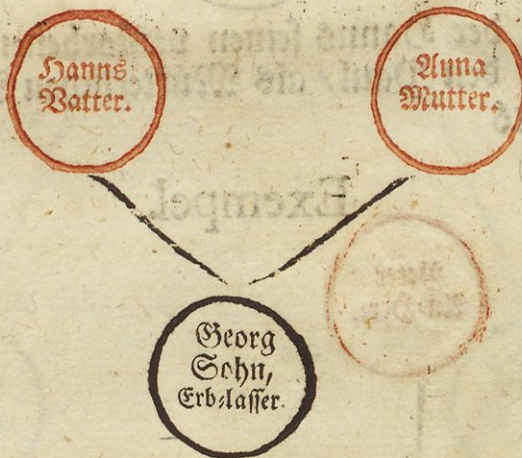 Hanns
Vatter.
Anna
Mutter.
Georg
Sohn,
Erb-lasser.